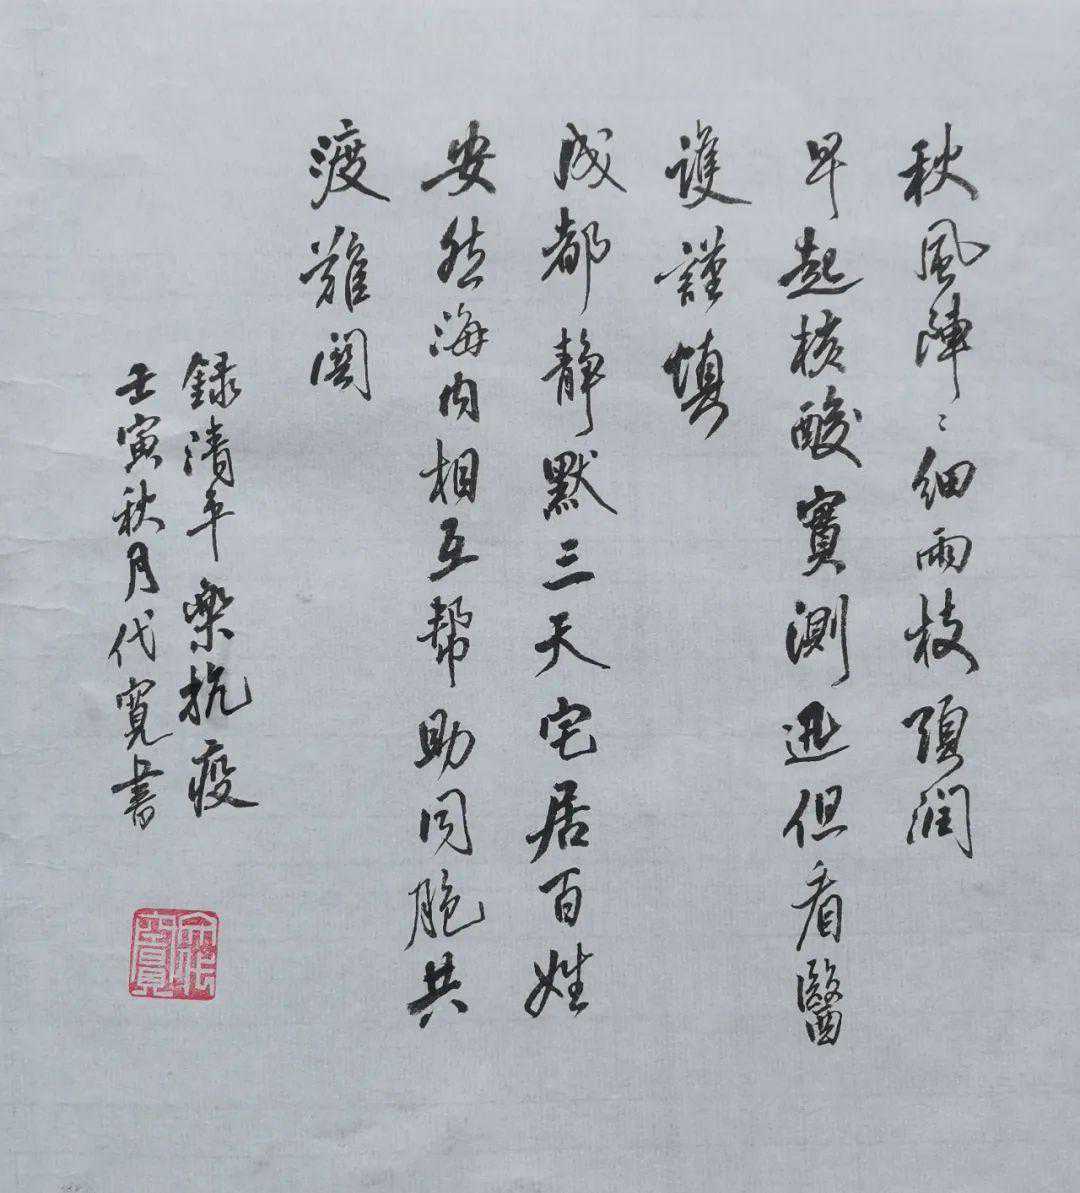 秋風陣〻細雨枝頭潤
早起核酸實測迅但看醫
護謹慎
成都靜默三天宅居百姓
安然海内相互幫助同胞共
渡難關
録清平樂抗疫
壬寅秋月代寬書